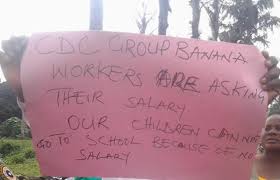 CDC GROUP BANANA
WORKERS ARE ASKING
THEIR SALARY
OUR CHILDREN CAN NOT
GO TO SCHOOL BECAUSE OF NO
SALARY